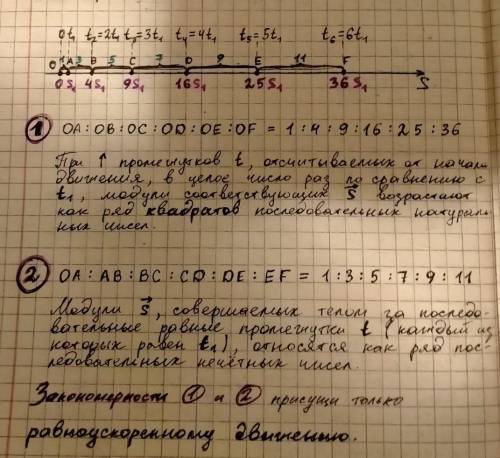 0t₁ t₂=2t₁ t₃=3t₁ t₄=4t₁ t₅=5t₁ t₆=6t₁
O A B C D E F
1 3 5 7 9 11
0 S₁ 4S₁ 9S₁ 16S₁ 25S₁ 36S₁ S
① OA : OB : OC : OD : OE : OF = 1 : 4 : 9 : 16 : 25 : 36
При ↑ промежутков t, отсчитываемых от начала
движения, в целое число раз по сравнению с
t₁, модули соответствующих S⃗ возрастают
как ряд квадратов последовательных натураль-
ных чисел.
② OA : AB : BC : CD : DE : EF = 1 : 3 : 5 : 7 : 9 : 11
Модули S⃗, совершаемых телом за последо-
вательные равные промежутки t (каждый из
которых равен t₁), относятся как ряд пос-
ледовательных нечётных чисел.
Закономерности ① и ② присущи только
равноускоренному движению.